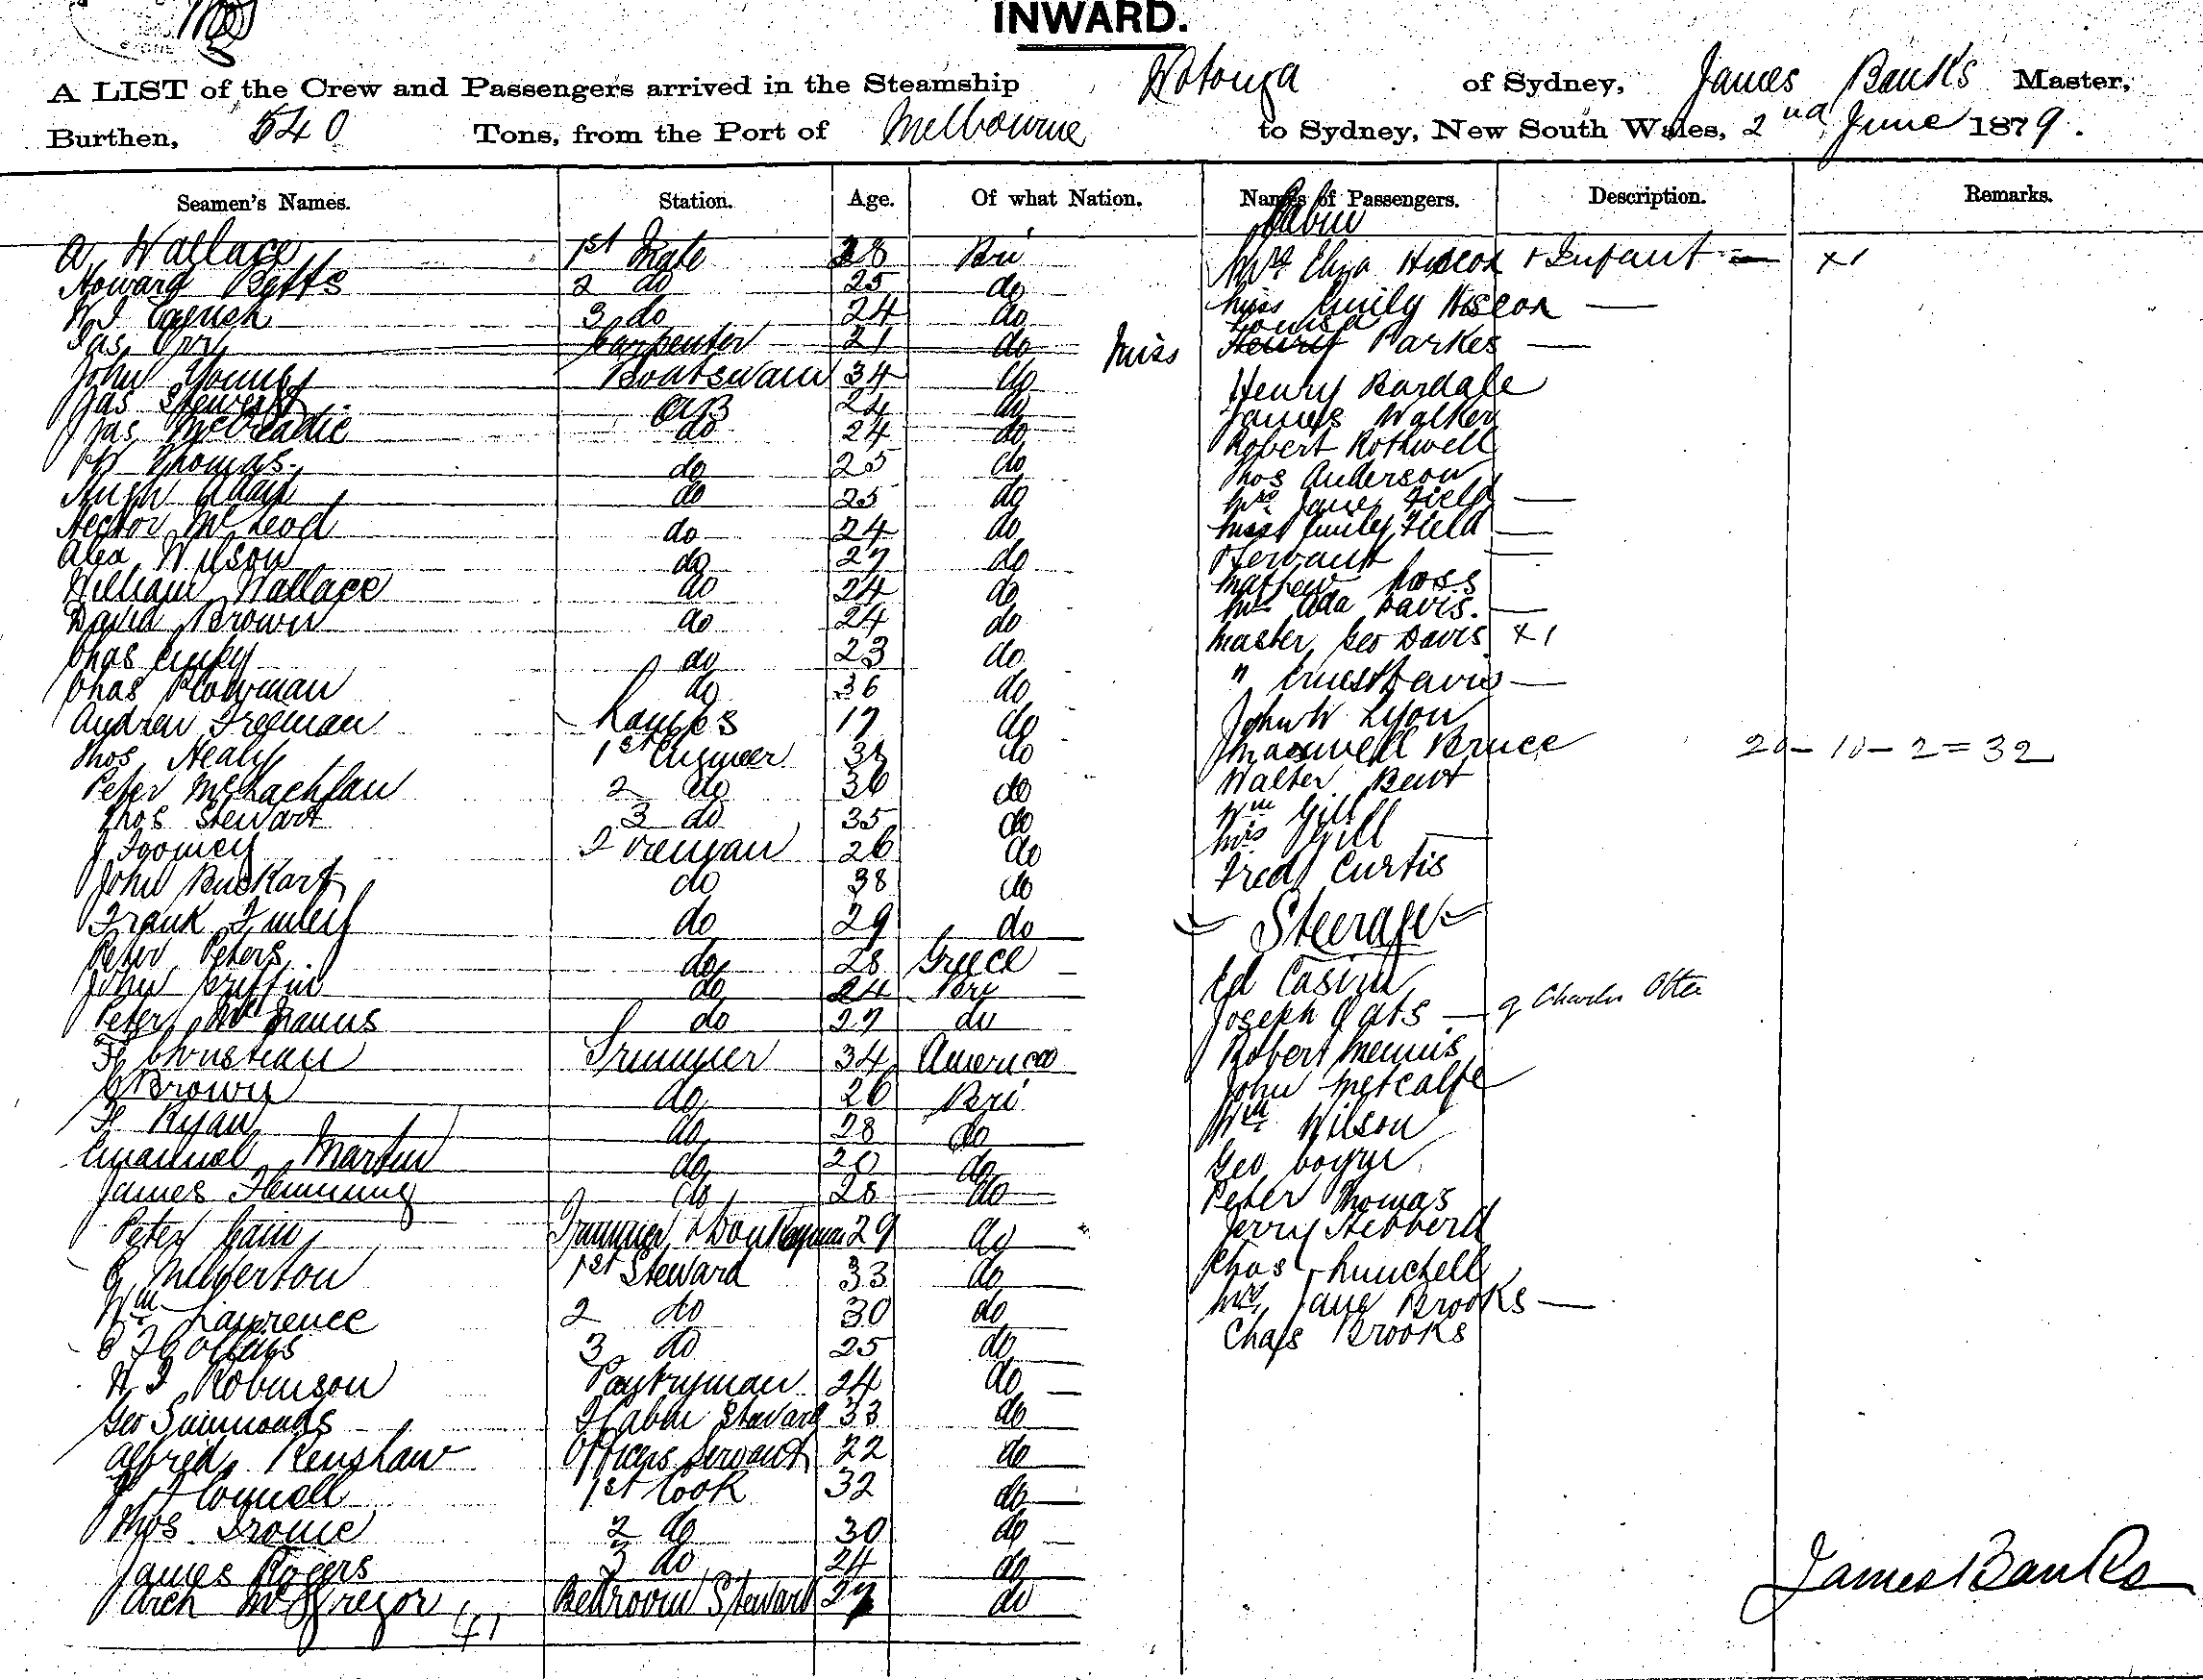 INWARD.
A LIST of the Crew and Passengers arrived in the Steamship Wotonga of Sydney, James Banks Master,
Burthen, 540 Tons, from the Port of Melbourne to Sydney, New South Wales, 2nd June 1879.
Seamen's Names. Station. Age. Of what Nation. Names of Passengers. Description. Remarks.
Cabin
A Wallace 1st Mate 28 Bri Mrs Eliza Hiscox + Infant — x1
Howard Betts 2 do 25 do Miss Emily Hiscox —
W J 3 do 24 do Louisa
Jas Orr Carpenter 21 do Miss Henry Parkes —
John Young Boatswain 34 do Henry Bardale
Jas Stewart AB 24 do James Walker
Jas McCreadie do 24 do Robert Rothwell
W Thomas do 25 do Thos Anderson
Hugh Adair do 25 do Mrs Jane Field —
Hector McLeod do 24 do Miss Emily Field —
Alex Wilson do 27 do Servant —
William Wallace do 24 do Mathew Moss
David Brown do 24 do Mrs Ada Davis. —
Chas do 23 do Master Geo Davis x1
Chas Plowman do 36 do " Ernest Davis —
Andrew Freeman Lamps 17 do John W Lyon
Thos Healy 1st Engineer 38 do Maxwell Bruce 20 - 10 - 2 = 32
Peter McLachlan 2 do 36 do Walter Bent
Thos Stewart 3 do 35 do Wm Gill
J Toomey Fireman 26 do Mrs Gill —
John Buckart do 38 do Fred Curtis
Frank Finley do 29 do Steerage
Peter Peters do 28 Greece Ed Casind
John Griffin do 24 Bri Joseph Oats — Charles Otte
Peter McManus do 27 do Robert Mennis
F Christian Trimmer 34 America John Metcalfe
C Brown do 26 Bri Wm Wilson
F Ryan do 28 do Geo Coyne
Emanuel Martin do 20 do Peter Thomas
James Flemming do 28 do Jerry Hebberd
Peter Cain Trimmer & Donkeyman 29 do Chas
G Milverton 1st Steward 33 do Mrs Jane Brooks —
Wm Lawrence 2 do 30 do Chas Brooks
3 do 25 do
W J Robinson Pantryman 24 do
Geo Simmonds F Cabin Steward 33 do
Alfred Renshaw Officers Servant 22 do
J Connell 1st Cook 32 do
Thos Frome 2 do 30 do
James Rogers 3 do 24 do
Arch McGregor Bedroom Steward 27 do
41
James Banks